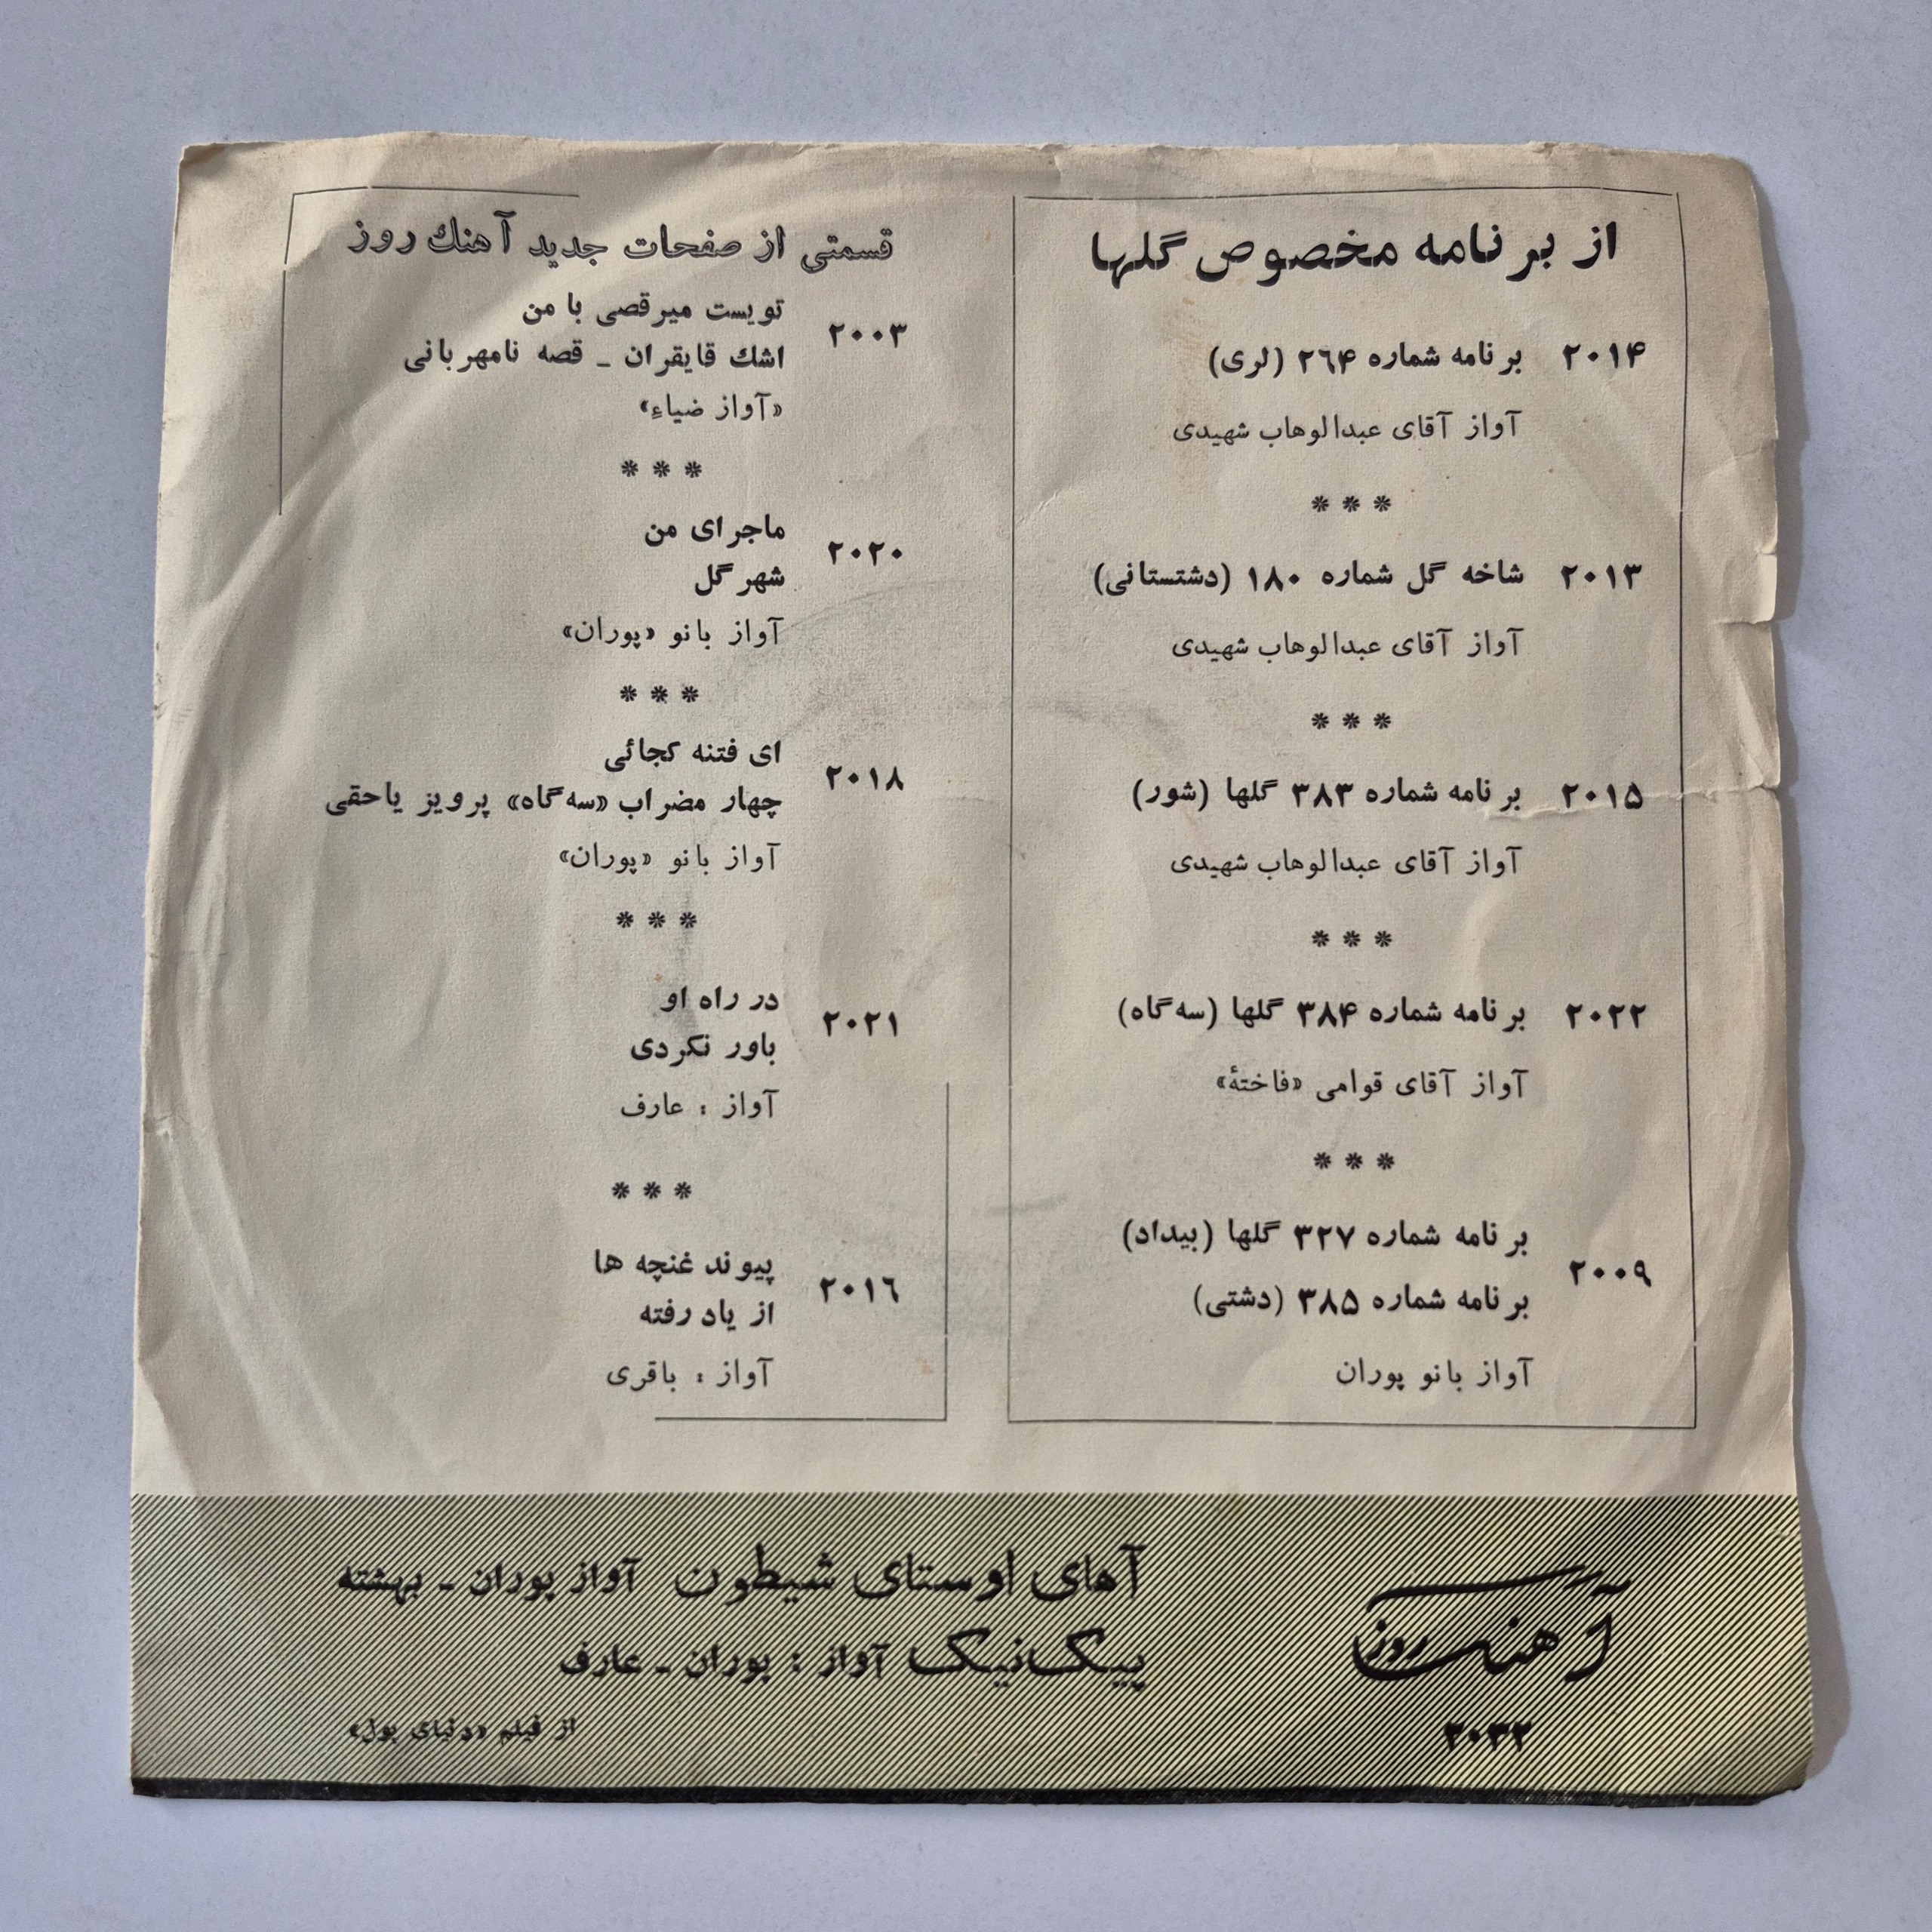 از برنامه مخصوص گلها
۲۰۱۴ برنامه شماره ۲٦۴ (لری)
آواز آقای عبدالوهاب شهیدی
* * *
۲۰۱۳ شاخه گل شماره ۱۸۰ (دشتستانی)
آواز آقای عبدالوهاب شهیدی
* * *
۲۰۱۵ برنامه شماره ۳۸۳ گلها (شور)
آواز آقای عبدالوهاب شهیدی
* * *
۲۰۲۲ برنامه شماره ۳۸۴ گلها (سه‌گاه)
آواز آقای قوامی «فاختهٔ»
* * *
برنامه شماره ۳۲۷ گلها (بیداد)
۲۰۰۹
برنامه شماره ۳۸۵ (دشتی)
آواز بانو پوران
قسمتی از صفحات جدید آهنك روز
تویست میرقصی با من
۲۰۰۳
اشك قایقران ـ قصه نامهربانی
«آواز ضیاء»
* * *
ماجرای من
۲۰۲۰
شهر گل
آواز بانو «پوران»
* * *
ای فتنه کجائی
۲۰۱۸
چهار مضراب «سه‌گاه» پرویز یاحقی
آواز بانو «پوران»
* * *
در راه او
۲۰۲۱
باور نکردی
آواز : عارف
* * *
پیوند غنچه ها
۲۰۱٦
از یاد رفته
آواز : باقری
آهنگ روز
۲۰۳۲
آهای اوستای شیطون آواز پوران ـ بهشته
پیک‌نیک آواز : پوران ـ عارف
از فیلم «دنیای پول»